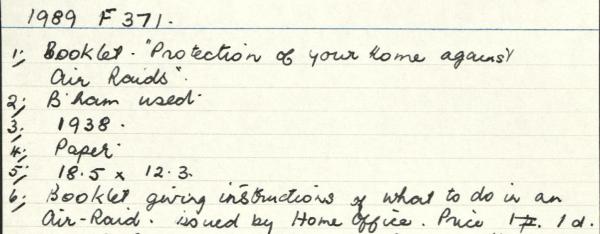 1989 F 371.
1; Booklet. "Protection of your Home against
Air Raids".
2; B'ham used.
3; 1938.
4; Paper.
5; 18.5 x 12.3.
6; Booklet giving instructions of what to do in an
Air-Raid. issued by Home Office. Price 1d.